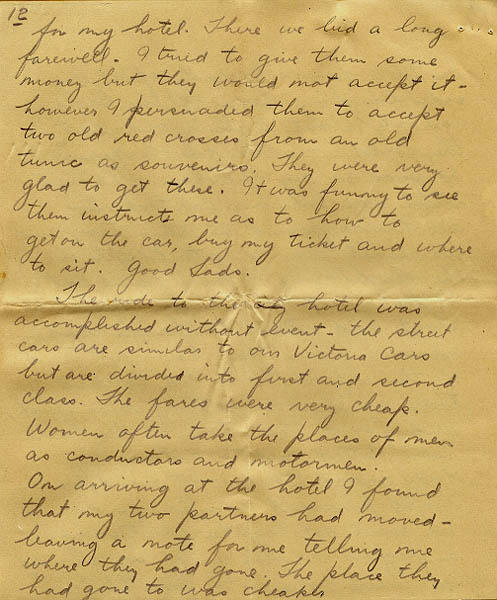 12
for my hotel. There we bid a long
farewell. I tried to give them some
money but they would not accept it -
however I persuaded them to accept
two old red crosses from an old
tunic as souvenirs. They were very
glad to get these. It was funny to see
them instruct me as to how to
get on the car, buy my ticket and where
to sit. Good Lads.
The ride to the hotel was
accomplished without event - the street
cars are similar to our Victoria Cars
but are divided into first and second
class. The fares were very cheap.
Women often take the places of men
as conductors and motormen.
On arriving at the hotel I found
that my two partners had moved -
leaving a note for me telling me
where they had gone. The place they
had gone to was cheaper